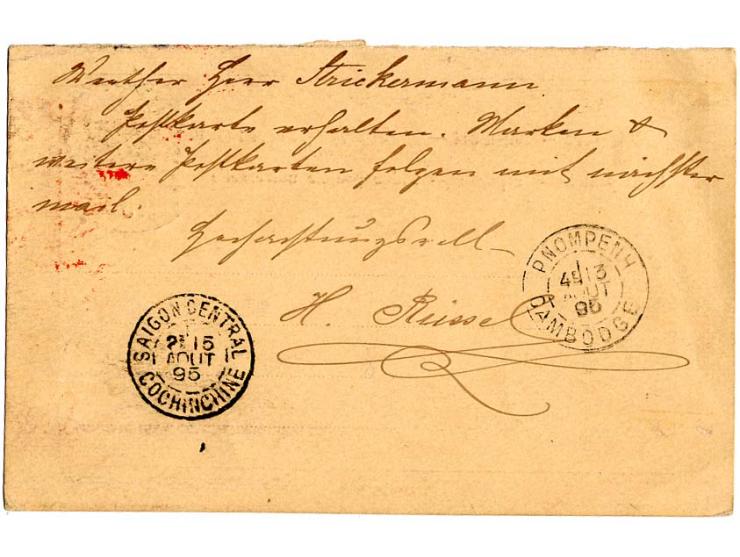 Werther Herr Strickermann
Postkarte erhalten. Marken &
weitere Postkarten folgen mit nächster
mail.
Hochachtungsvoll
H.
PNOMPENH
13
AOUT
95
CAMBODGE
SAIGON CENTRAL
2E 15
AOUT
95
COCHINCHINE